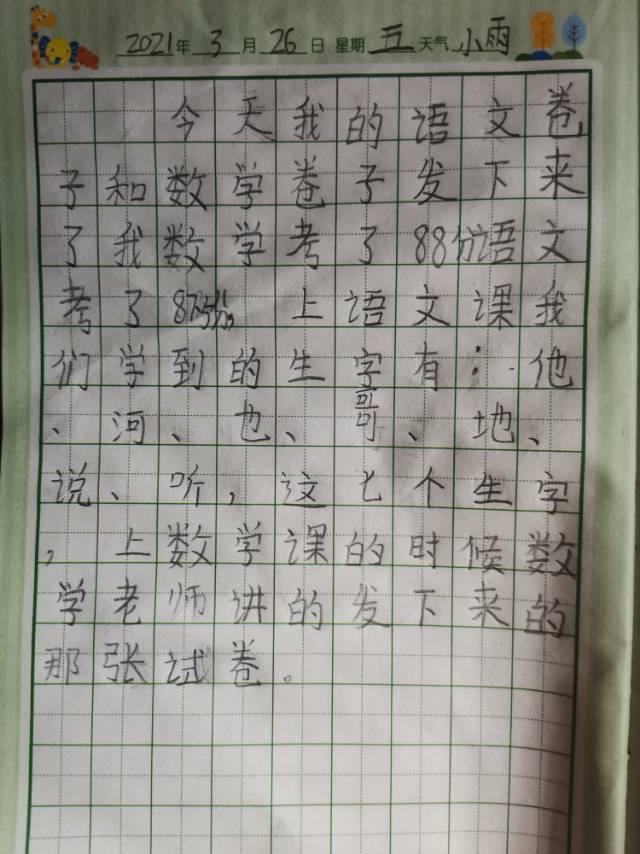 2021年3月26日 星期五 天气小雨
今天我的语文卷
子和数学卷子发下来
了我数学考了88分语文
考了87.5分 上语文课我
们学到的生字有：他
、河、也、哥、地、
说、听，这七个生字
，上数学课的时候数
学老师讲的发下来的
那张试卷。